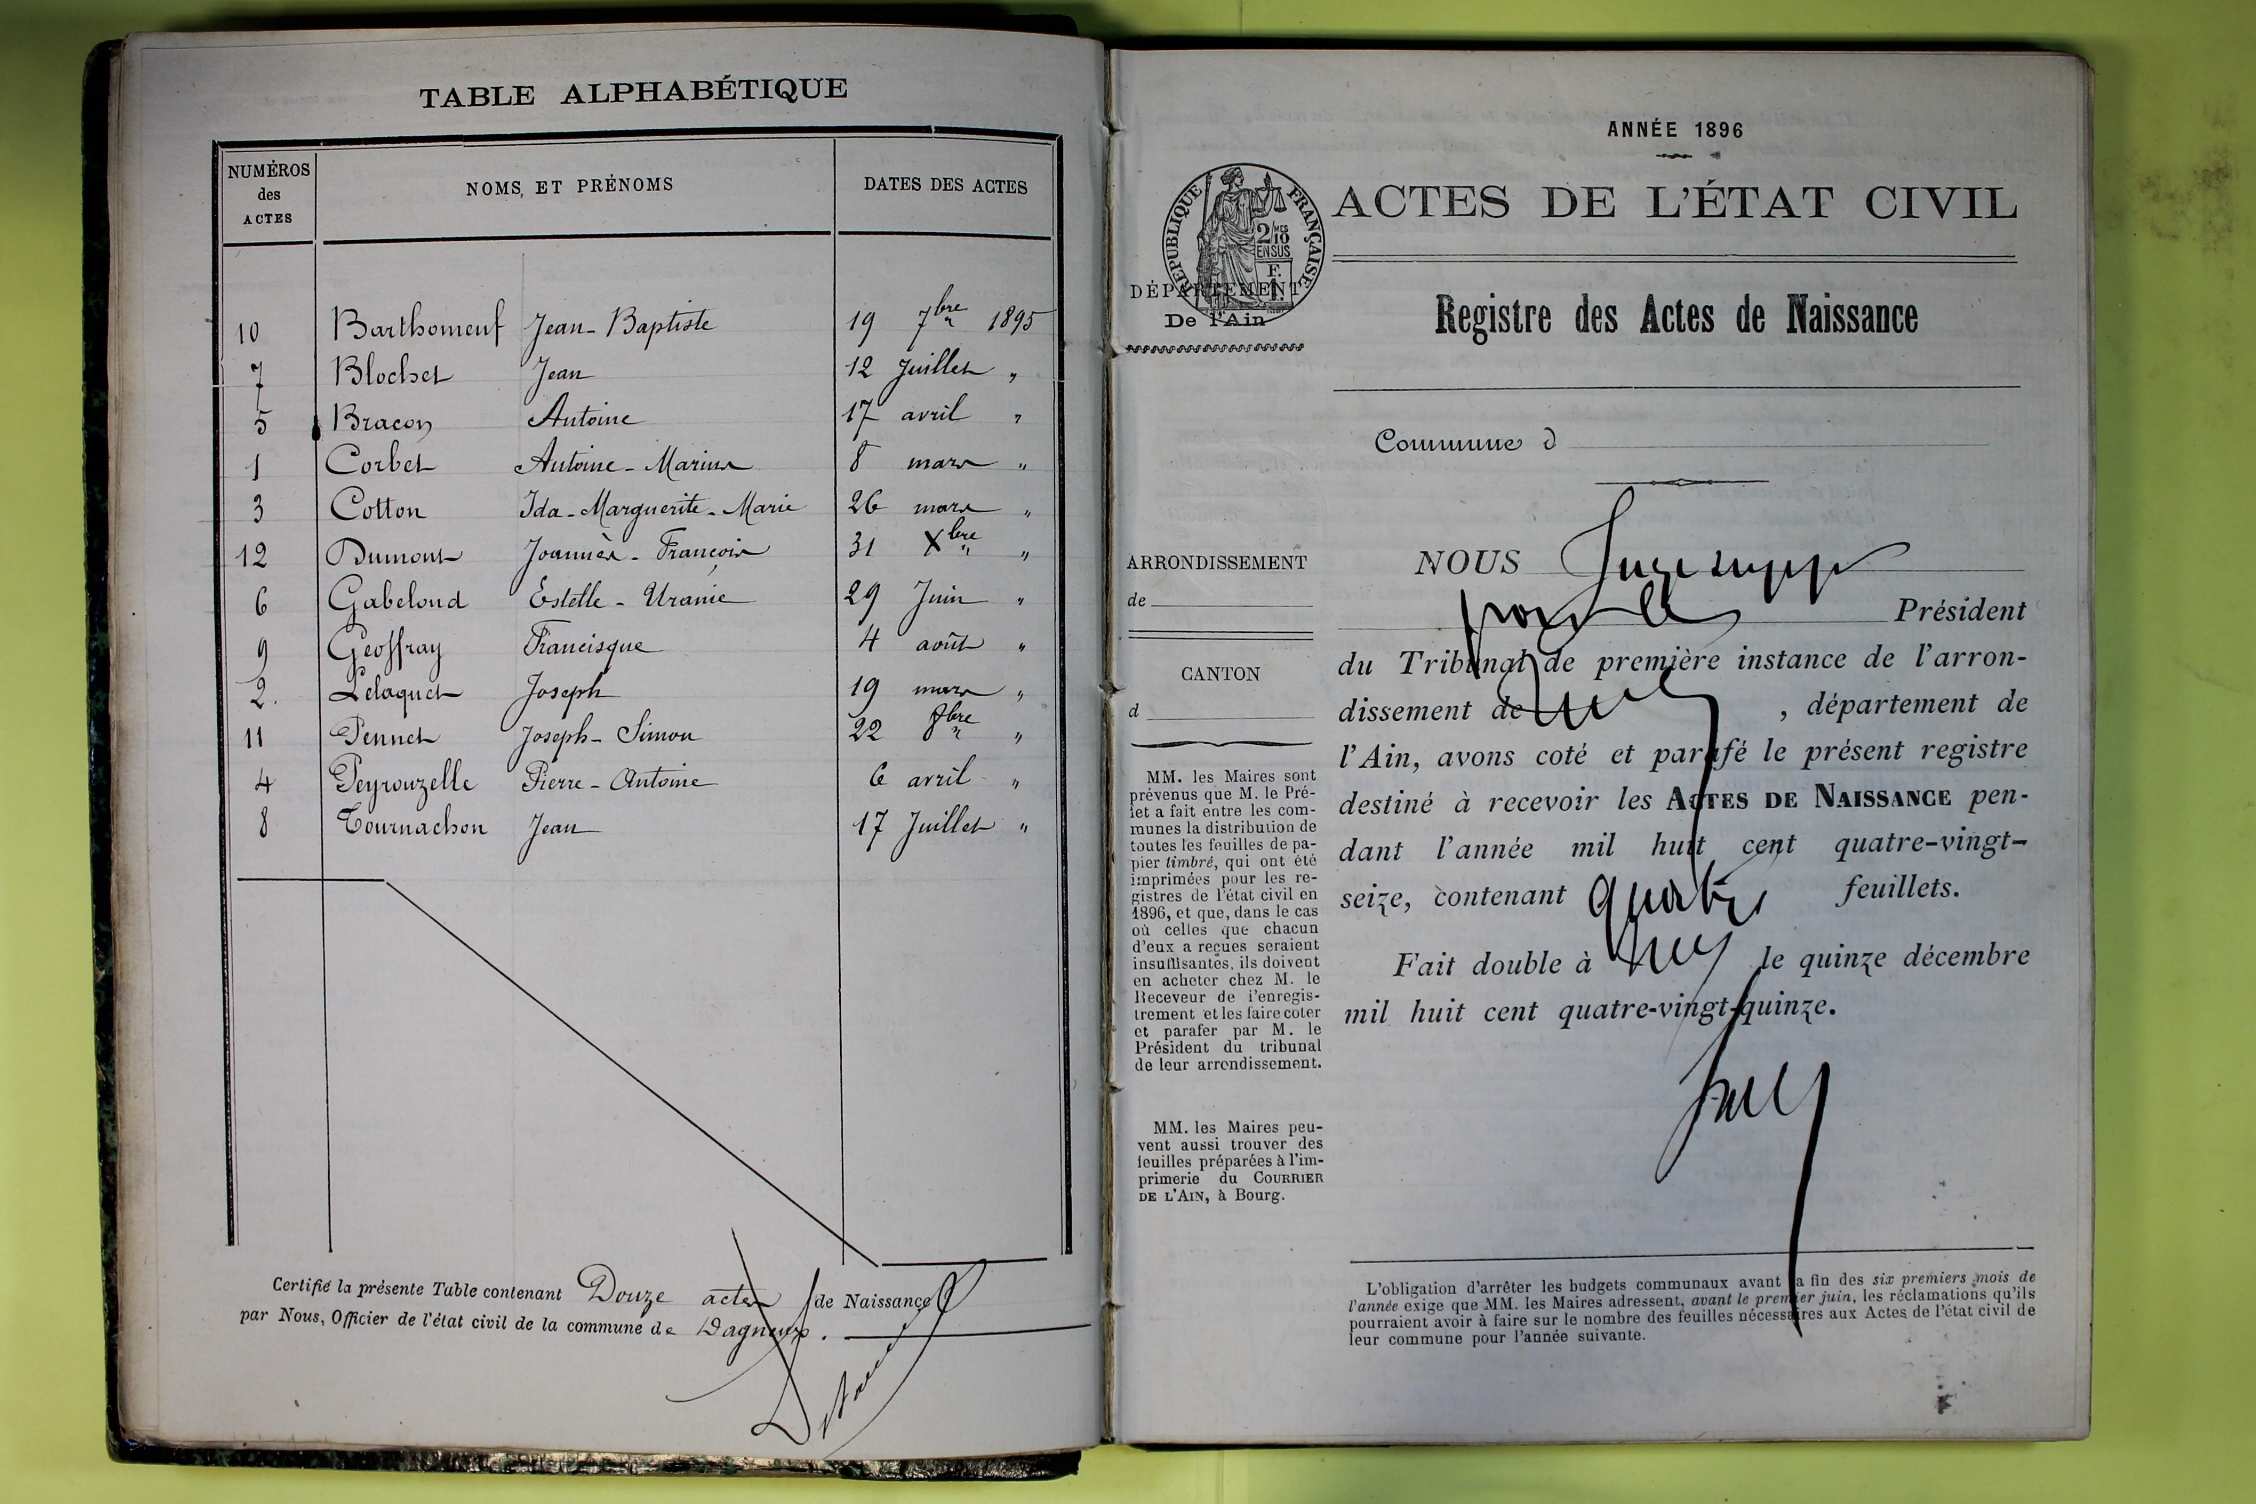 TABLE ALPHABÉTIQUE
NUMÉROS des ACTES
NOMS ET PRÉNOMS
DATES DES ACTES
10 Barthomeuf Jean-Baptiste 19 7bre 1895
7 Blochet Jean 12 Juillet "
5 Bracon Antoine 17 avril "
1 Corbet Antoine-Marius 8 mars "
3 Cotton Ida-Marguerite-Marie 26 mars "
12 Dumont Joannès-François 31 Xbre "
6 Gabeloud Estelle-Uranie 29 Juin "
9 Geoffray Francisque 4 août "
2. Lelaquet Joseph 19 mars "
11 Pennet Joseph-Simon 22 8bre "
4 Peyrouzelle Pierre-Antoine 6 avril "
8 Tournachon Jean 17 Juillet "
Certifié la présente Table contenant Douze actes de Naissance
par Nous, Officier de l'état civil de la commune de Dagneux.
ANNÉE 1896
RÉPUBLIQUE FRANÇAISE
2/10
EN SUS
F.
ACTES DE L'ÉTAT CIVIL
DÉPARTEMENT
De l'Ain
Registre des Actes de Naissance
Commune d
ARRONDISSEMENT
de
CANTON
d
MM. les Maires sont
prévenus que M. le Pré-
fet a fait entre les com-
munes la distribution de
toutes les feuilles de pa-
pier timbré, qui ont été
imprimées pour les re-
gistres de l'état civil en
1896, et que, dans le cas
où celles que chacun
d'eux a reçues seraient
insuffisantes, ils doivent
en acheter chez M. le
Receveur de l'enregis-
trement et les faire coter
et parafer par M. le
Président du tribunal
de leur arrondissement.
MM. les Maires peu-
vent aussi trouver des
feuilles préparées à l'im-
primerie du COURRIER
DE L'AIN, à Bourg.
NOUS
Président
du Tribunal de première instance de l'arron-
dissement de , département de
l'Ain, avons coté et parafé le présent registre
destiné à recevoir les ACTES DE NAISSANCE pen-
dant l'année mil huit cent quatre-vingt-
seize, contenant quatre feuillets.
Fait double à le quinze décembre
mil huit cent quatre-vingt-quinze.
L'obligation d'arrêter les budgets communaux avant la fin des six premiers mois de
l'année exige que MM. les Maires adressent, avant le premier juin, les réclamations qu'ils
pourraient avoir à faire sur le nombre des feuilles nécessaires aux Actes de l'état civil de
leur commune pour l'année suivante.